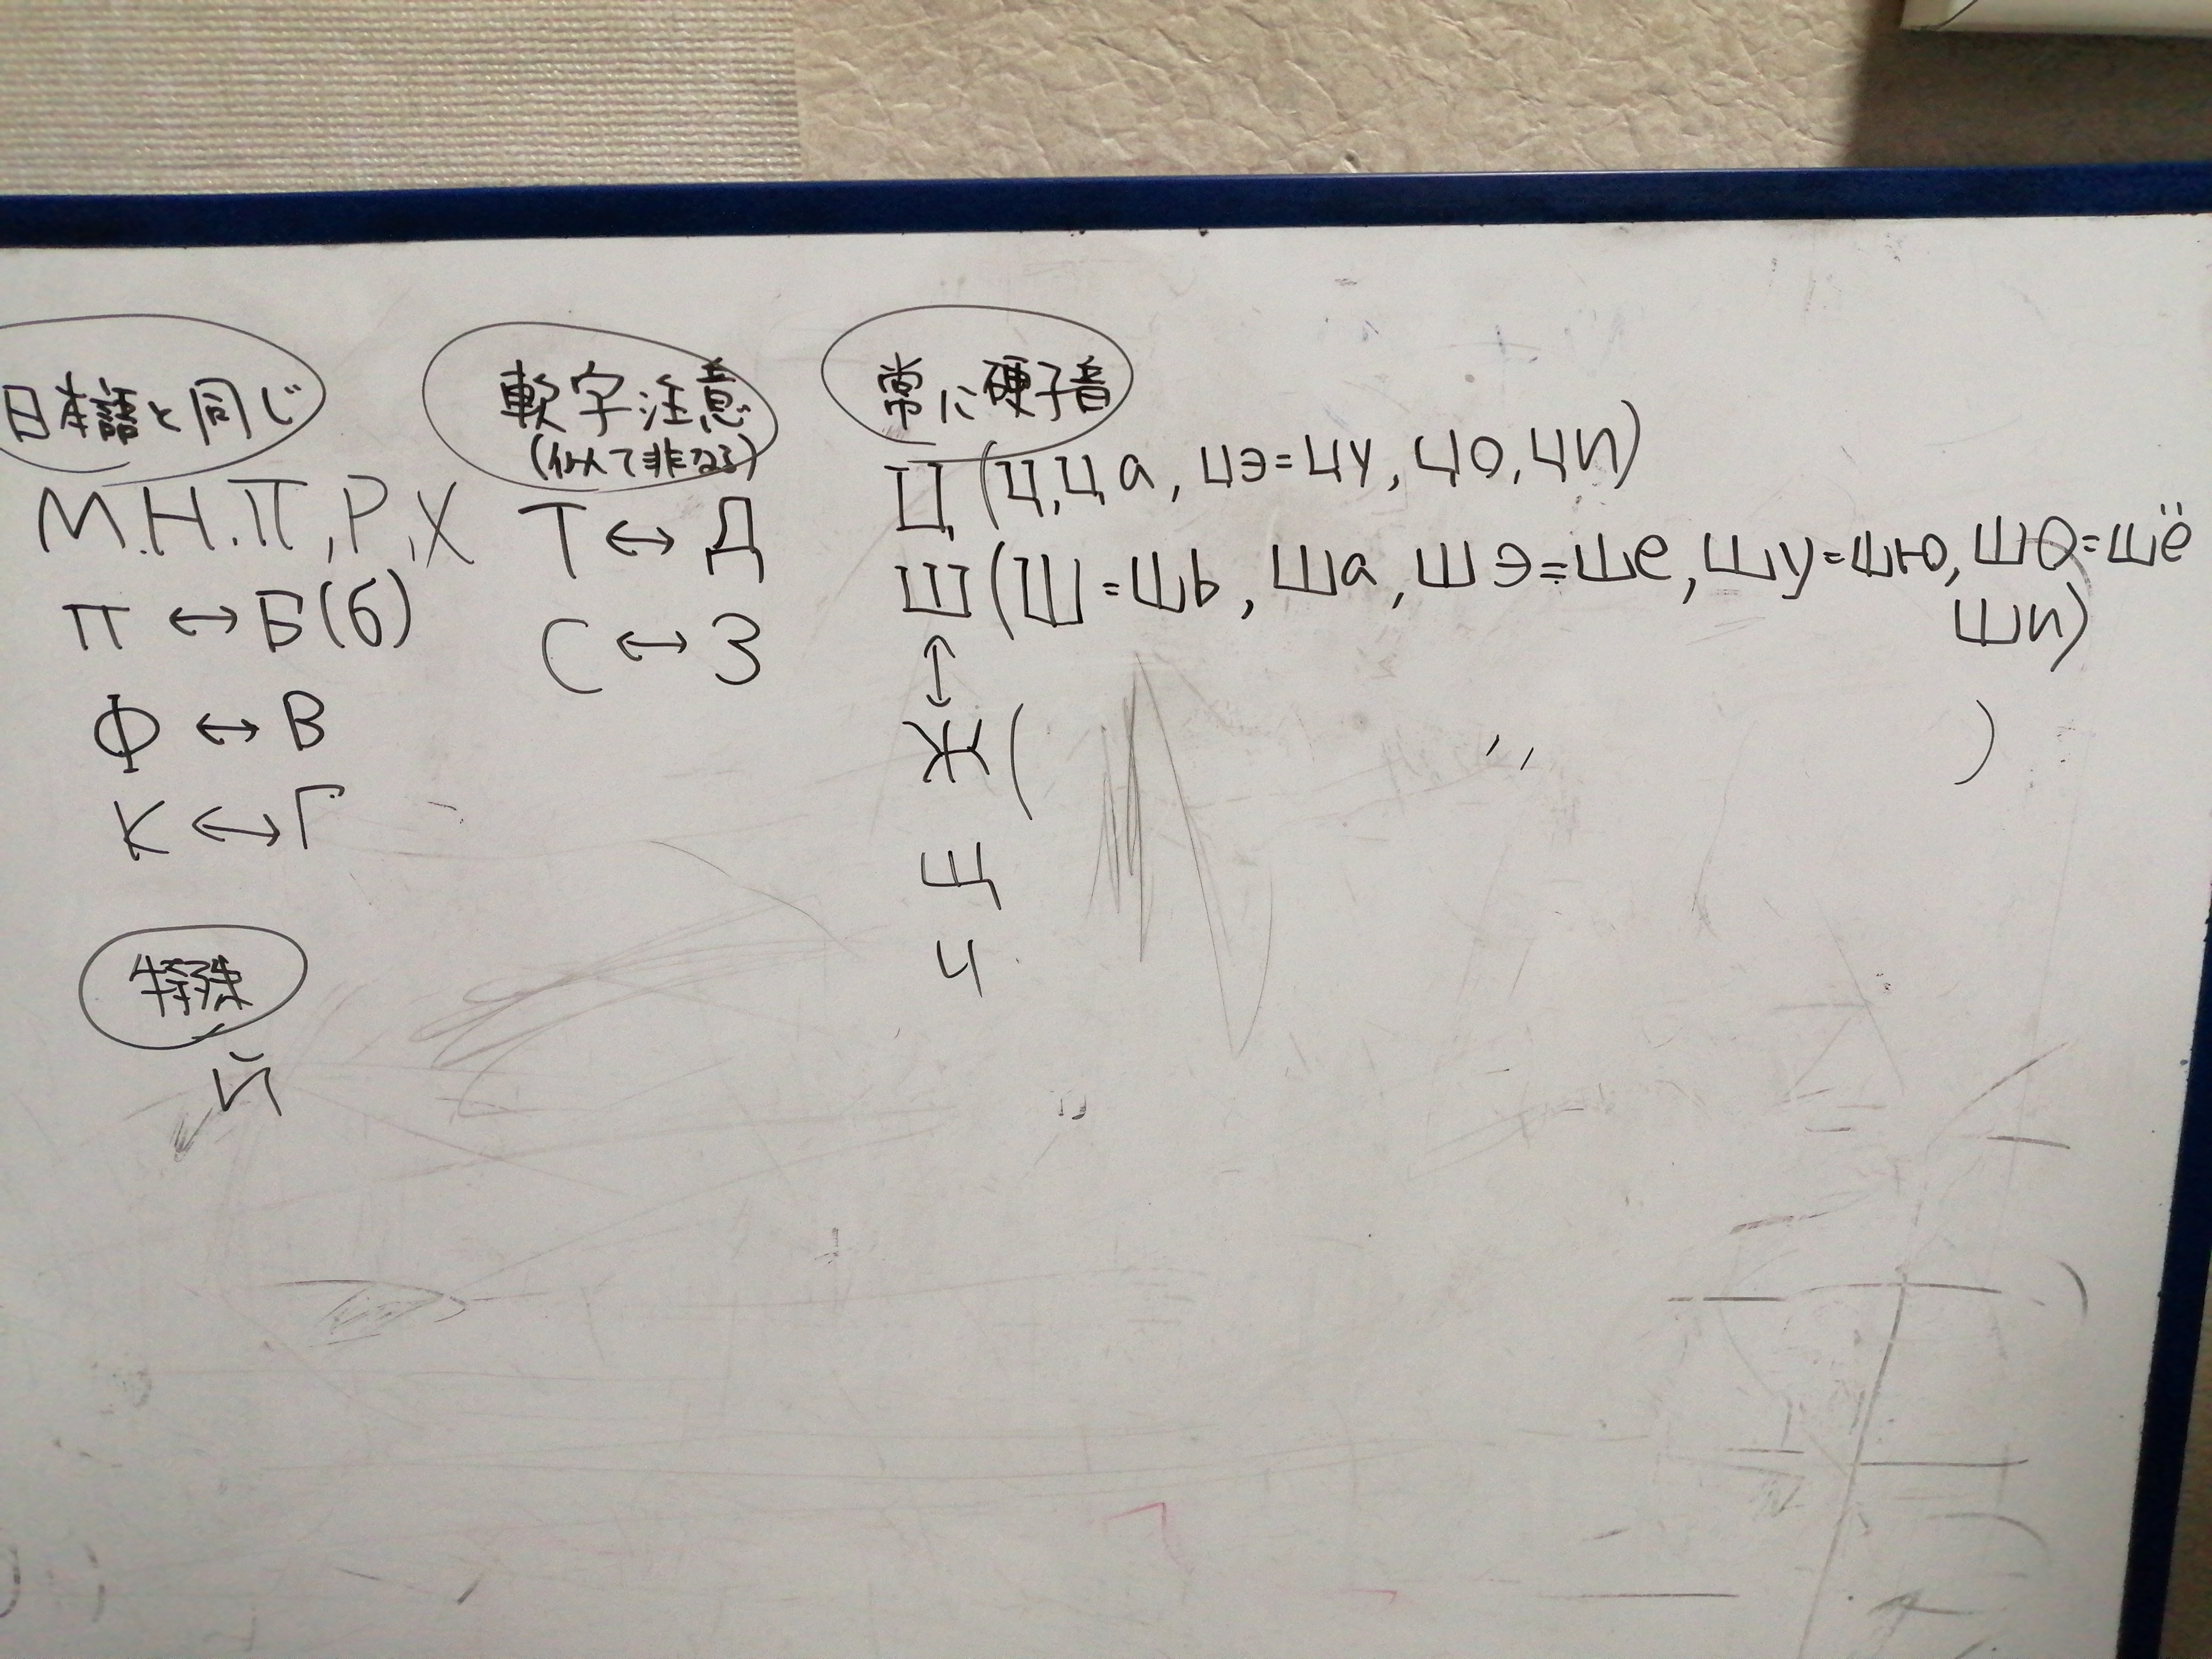 日本語と同じ
М.Н.П,Р,Х
П ↔ Б(б)
Ф ↔ В
К ↔ Г
特殊
й
軟字注意
(似て非なる)
Т ↔ Д
С ↔ З
常に硬子音
Ц (Ц,Ца, цэ=цу, цо, ци)
Ш (Ш=шь, ша, шэ=ше, шу=шю, шо=шё
ши)
↕
Ж ( 〃 )
Щ
Ч